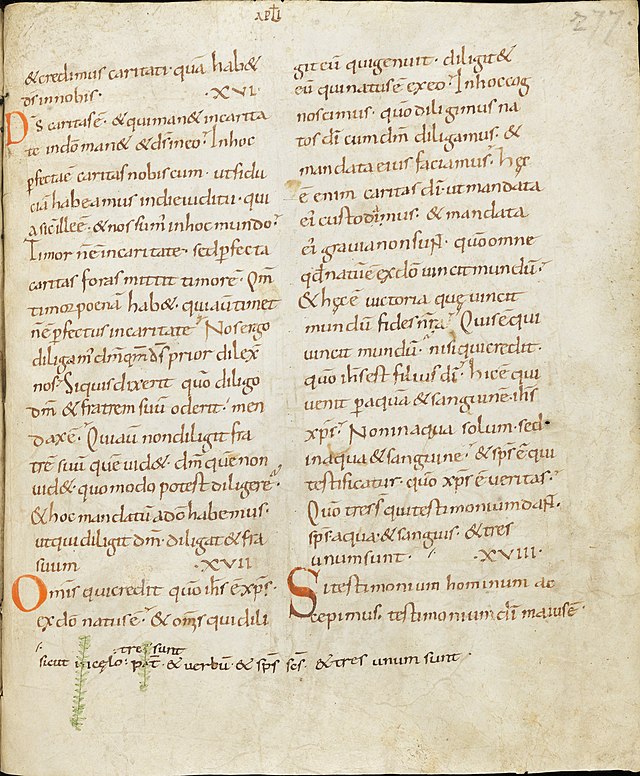 APLI
277
& credimus caritati quā hab&
d̄s in nobis · XVI ·
D̄s caritas ē· & qui man& in carita
te in d̄o man& & d̄s in eo· In hoc
pfecta ē caritas nobiscum · ut fidu
ciā habeamus in die iudicii· qui
a sic ille ē· & nos sum̄ in hoc mundo·
Timor n̄ ē in caritate · sed pfecta
caritas foras mittit timorē· Qm̄
timor poenā hab&· qui aū timet
n̄ ē pfectus in caritate· Nos ergo
diligam̄ d̄m qm̄ d̄s prior dilex̄
nos· Si quis dixerit quō diligo
d̄m & fratrem suū oderit· men
dax ē· Qui aū non diligit fra
trē suū quē vid&· d̄m quē non
vid&· quomodo potest diligere·
& hoc mandatū a d̄o habemus·
ut qui diligit d̄m · diligat & fra
suum · XVII ·
Om̄is qui credit quō ih̄s ē xp̄s·
ex d̄o natus ē· & om̄s qui dili
git eū qui genuit · diligit &
eū qui natus ē ex eo· In hoc cog
noscimus · quō diligimus na
tos d̄i cum d̄m diligamus· &
mandata eius faciamus· hęc
ē enim caritas d̄i· ut mandata
ei custodimus· & mandata
ei gravia non sun̄t· quō omne
qd̄ natū ē ex d̄o vincit mundū·
& hęc ē victoria quę vincit
mundū fides n̄ra· Quis ē qui
vincit mundū· nisi qui credit·
quō ih̄s est filius d̄i· hic ē qui
venit p aquā & sanguinē· ih̄s
xp̄s· Non in aqua solum· sed·
in aqua & sanguine· & sp̄s ē qui
testificatur· quō xp̄s ē veritas·
Quō tres s̄ qui testimonium dan̄t·
sp̄s· aqua· & sanguis· & tres
unum sunt · XVIII ·
Si testimonium hominum ac
cepimus· testimonium d̄i maius ē·
tres sunt
sicut in cęlo · p̄t̄ & verbū & sp̄s sc̄s & tres unum sunt